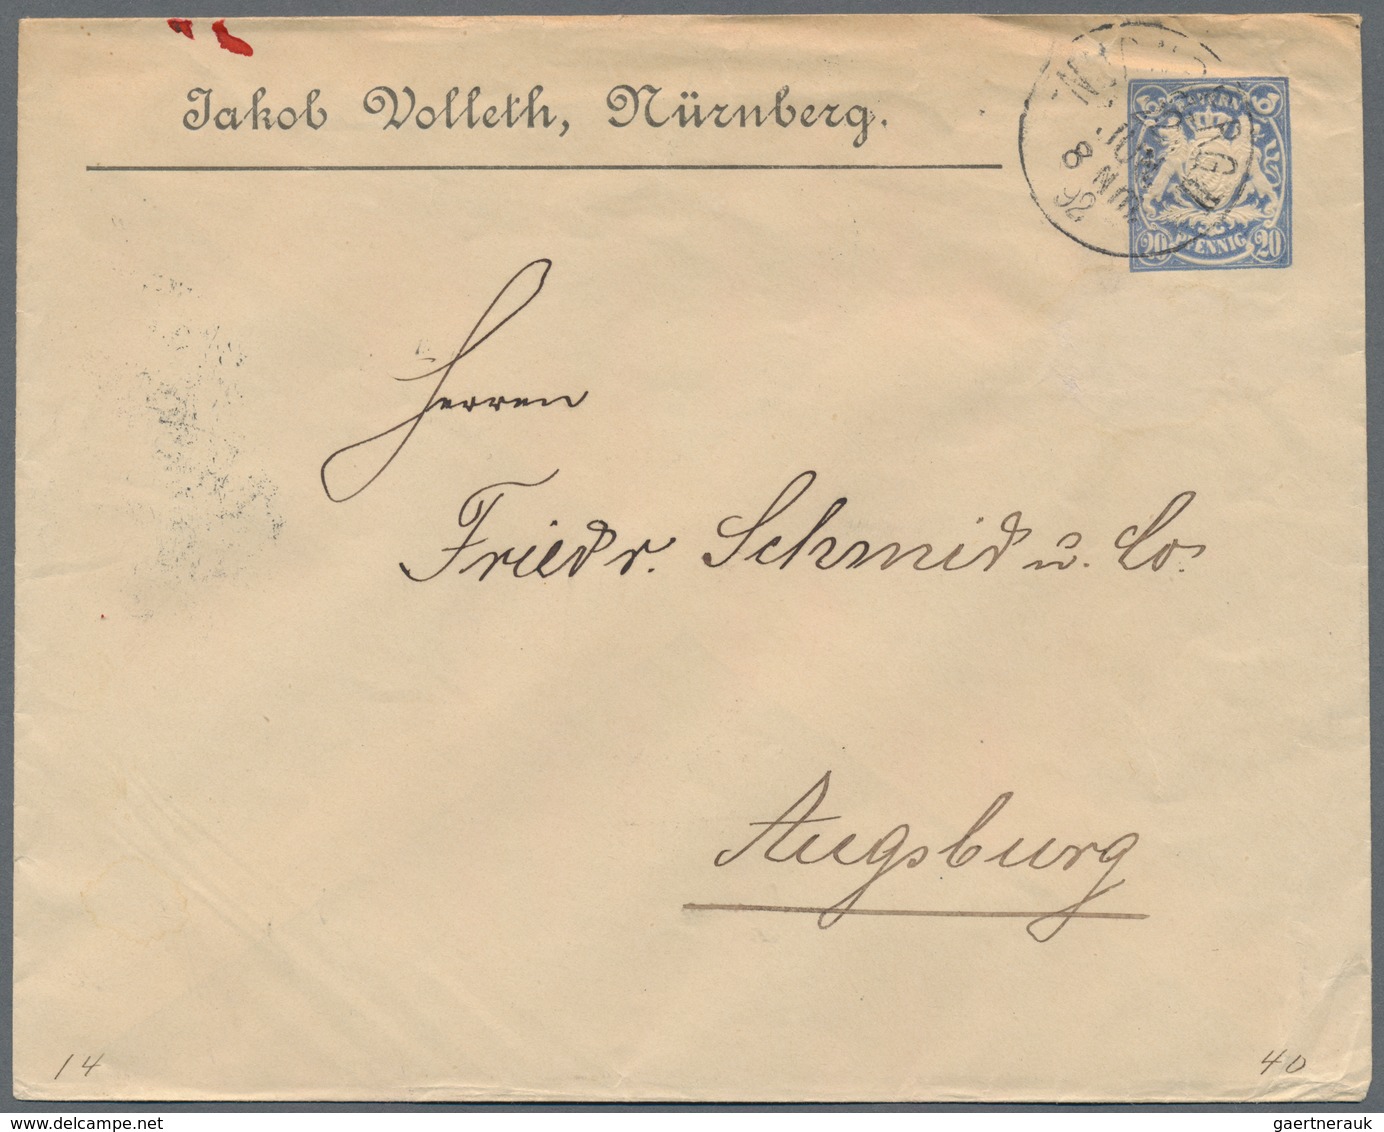 Jakob Volleth, Nürnberg.
NÜRNBERG II
8 JUN
92
BAYERN
20 PFENNIG 20
Herren
Friedr. Schmid u. Co.
Augsburg
14 40
www.delcampe.net
gaertnerauk